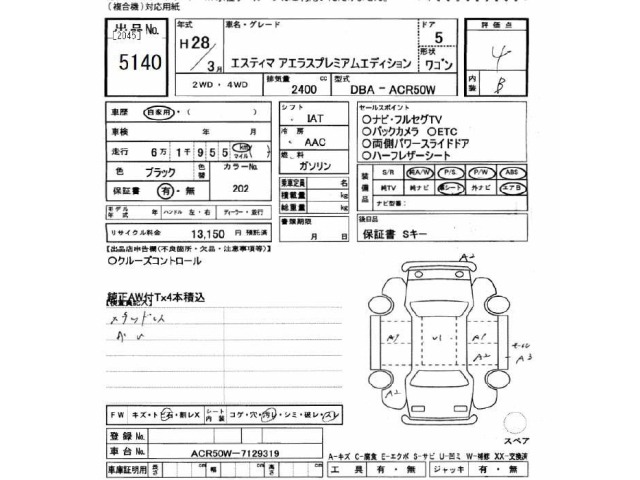 (複合機)対応用紙
出品No.
[2045]
5140
年式
H28/3月
車名・グレード
エスティマ アエラスプレミアムエディション
ドア
5
形状
ワゴン
評価点
4
内装
B
2WD ・ 4WD
排気量
2400 cc
型式
DBA - ACR50W
車歴 自家用・( )
車検 年 月
走行 6万 1千 955 km マイル
色 ブラック 色替 カラーNo. 202
保証書 有・無
シフト IAT
冷房 AAC
燃料 ガソリン
乗車定員 名
積載量 kg
総重量 kg
書類期限 月 日
セールスポイント
○ナビ・フルセグTV
○バックカメラ ○ETC
○両側パワースライドドア
○ハーフレザーシート
装備品
S/R 純A/W P/S P/W ABS
純TV 純ナビ 革シート 外ナビ エアB
ナビ型番:
モデル年式 年 ハンドル 左・右 ディーラー・並行
リサイクル料金 13,150 円 預託済
後日品
保証書 Sキー
【出品店申告欄(不良箇所・欠品・注意事項等)】
○クルーズコントロール
純正AW付Tx4本積込
【検査員記入】
A2
A1
U1
A1
A2
A3
A2
FW キズ・ト石・割レX シート内装 コゲ・穴・汚レ・シミ・破レ・スレ
スペア
登録No.
車台No. ACR50W-7129319
A-キズ C-腐食 E-エクボ S-サビ U-凹ミ W-補修 XX-交換済
車庫証明用 長さ cm 幅 cm 高さ cm
工具 有・無 ジャッキ 有・無